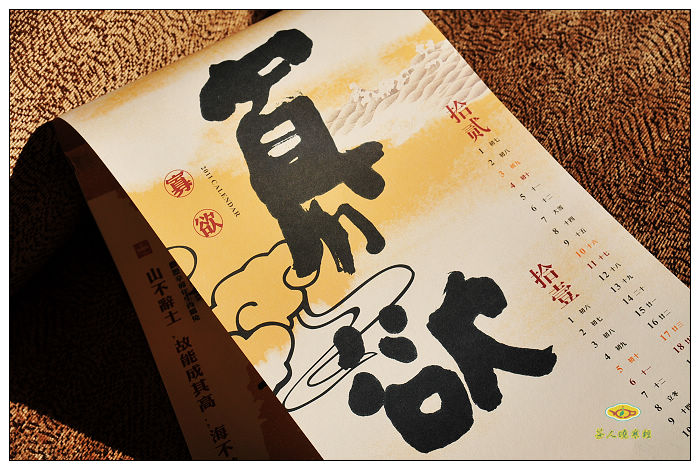 寡欲
寡
欲
2011 CALENDAR
拾贰
1 初七
2 初八
3 初九
4 初十
5 十一
6 十二
7 大雪
8 十四
9 十五
10 十六
11 十七
12 十八
13 十九
14 二十
15 廿一
16 廿二
17 廿三
18
拾壹
1 初六
2 初七
3 初八
4 初九
5 初十
6 十一
7 十二
8 立冬
9 十四
山不辭土，故能成其高；海不